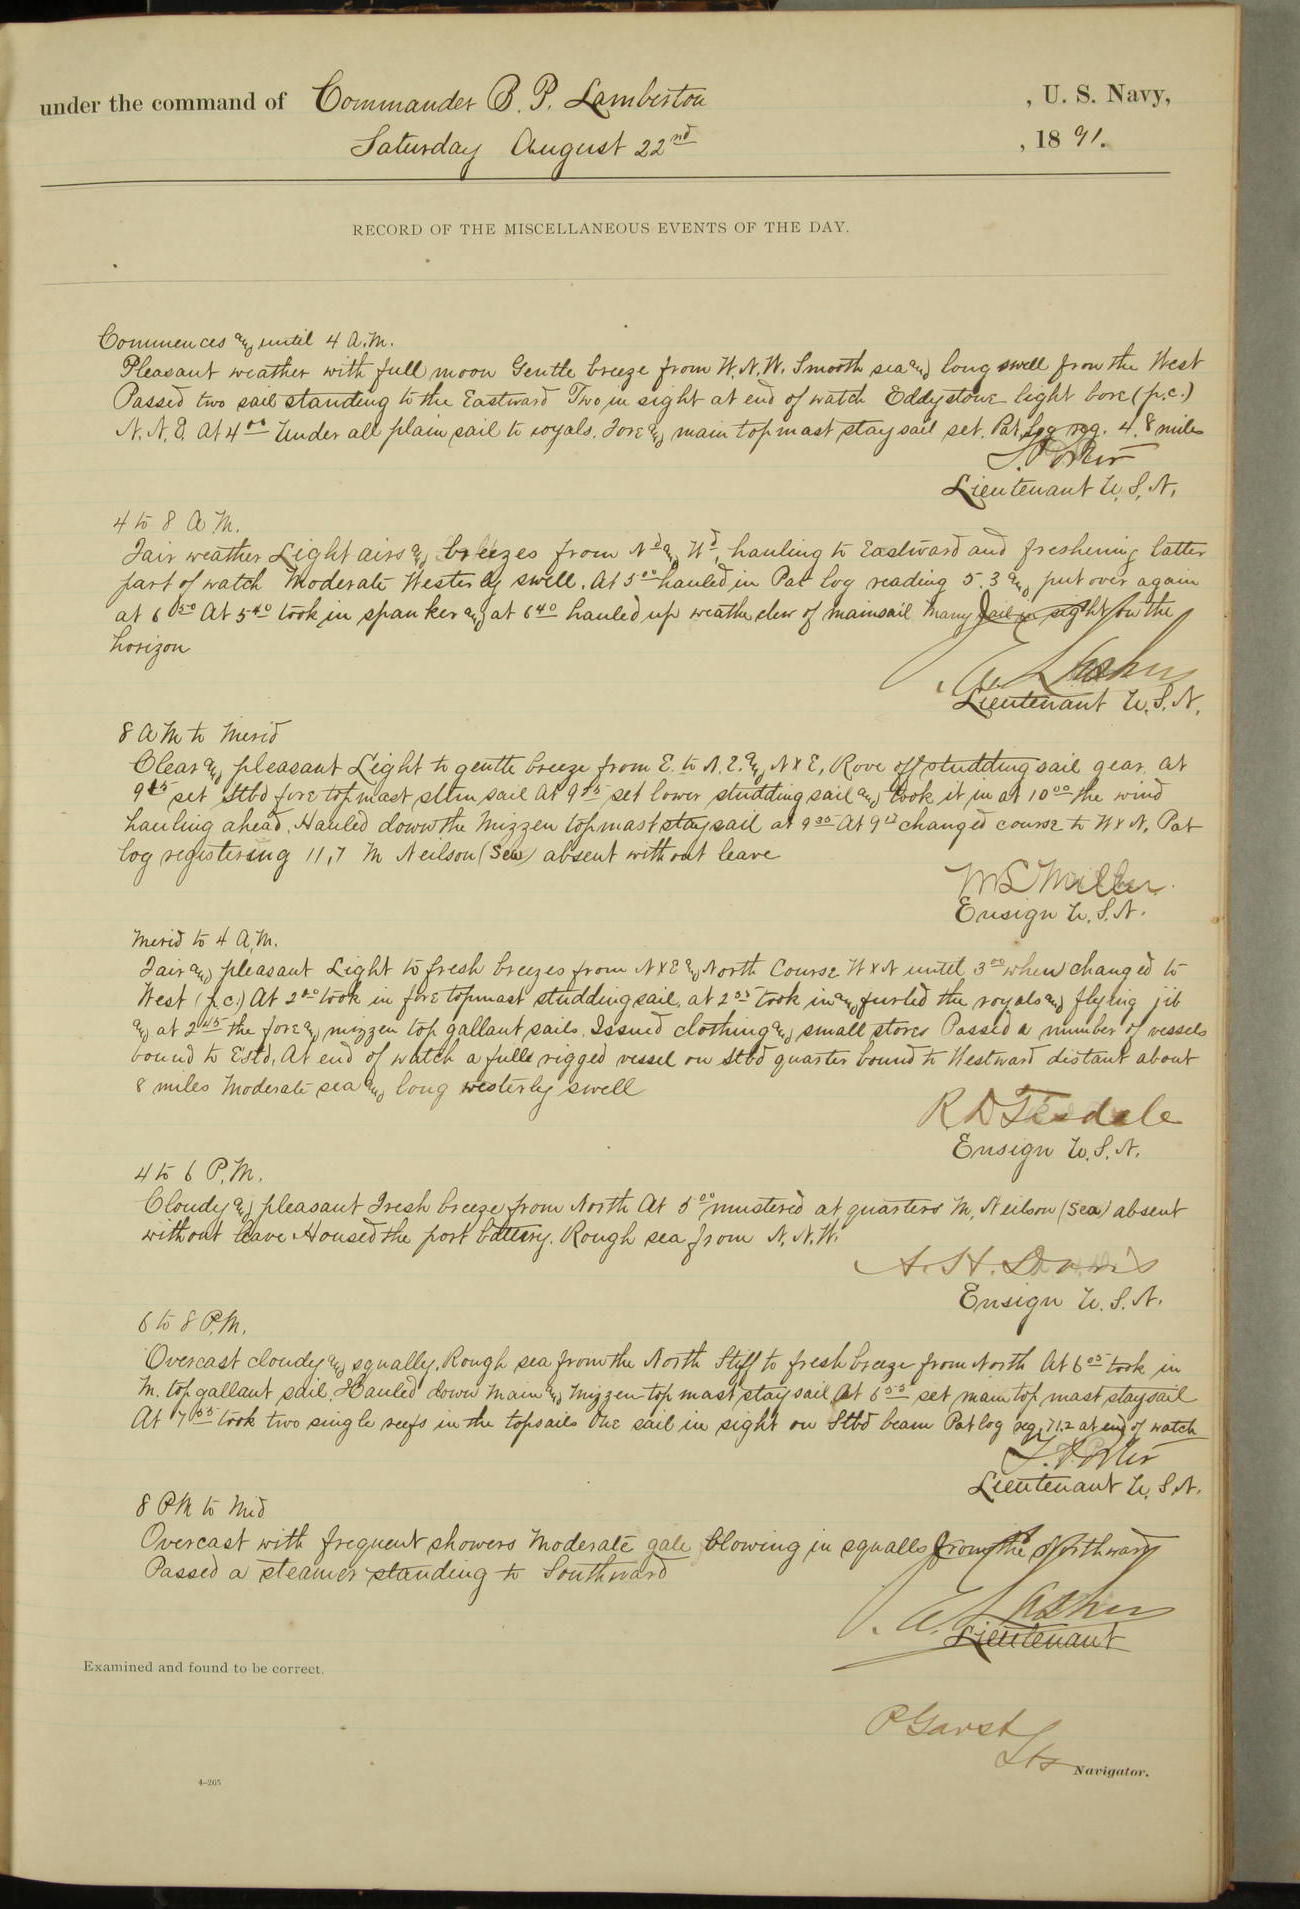 under the command of Commander B. P. Lamberton , U. S. Navy,
Saturday August 22nd , 1891.
RECORD OF THE MISCELLANEOUS EVENTS OF THE DAY.
Commences and until 4 A.M.
Pleasant weather with full moon Gentle breeze from W.N.W. Smooth sea and long swell from the West
Passed two sail standing to the Eastward Two in sight at end of watch Eddystone light bore (p.c.)
N.N.E. at 4 00 Under all plain sail to royals. Fore and main topmast staysail set. Pat. Log reg. 4.8 miles
Lieutenant U.S.N.
4 to 8 A.M.
Fair weather Light airs and breezes from Nd and Wd, hauling to Eastward and freshening latter
part of watch Moderate Westerly swell. At 5 00 hauled in Pat log reading 5.3 and put over again
at 6 50 At 5 40 took in spanker and at 6 40 hauled up weather clew of mainsail Many sail in sight on the
horizon
Lieutenant U.S.N.
8 AM to Merid
Clear and pleasant Light to gentle breeze from E. to N.E. and N x E, Rove off studdingsail gear. at
9 set Stbd fore topmast sail At 9 set lower studdingsail and took it in at 10 00 the wind
hauling ahead. Hauled down the Mizzen topmast staysail at 9 35 At 9 changed course to W x N, Pat
log registering 11,7 M Neilson (Sea) absent without leave
W S Miller
Ensign U.S.N.
Merid to 4 A.M.
Fair and pleasant Light to fresh breezes from N x E and North Course W x N until 3 00 when changed to
West (p.c.) At 2 00 took in fore topmast studdingsail. at 2 35 took in and furled the royals and flying jib
and at 2 45 the fore and mizzen top gallant sails. Issued clothing and small stores Passed a number of vessels
bound to Estd. At end of watch a full rigged vessel on Stbd quarter bound to Westward distant about
8 miles Moderate sea and long westerly swell
R D Tisdale
Ensign U.S.N.
4 to 6 P.M.
Cloudy and pleasant Fresh breeze from North At 5 00 mustered at quarters M. Neilson (Sea) absent
without leave Housed the port battery. Rough sea from N.N.W.
A. H. Davis
Ensign U.S.N.
6 to 8 P.M.
Overcast cloudy and squally. Rough sea from the North Stiff to fresh breeze from North At 6 05 took in
M. topgallant sail. Hauled down Main and Mizzen topmast staysail At 6 55 set main topmast staysail
At 7 35 took two single reefs in the topsails One sail in sight on Stbd beam Pat log reg. 71.2 at end of watch
Lieutenant U.S.N.
8 PM to Mid
Overcast with frequent showers Moderate gale blowing in squalls from the Northward
Passed a steamer standing to Southward
Lieutenant
Examined and found to be correct.
P Garst
Navigator.
4–265